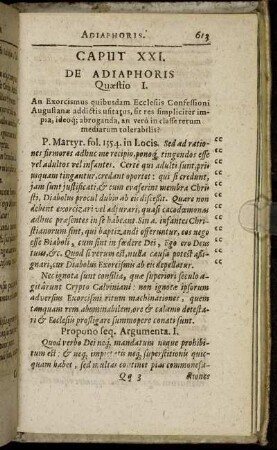 ADIAPHORIS. 613
CAPUT XXI.
DE ADIAPHORIS
Quæstio I.
An Exorcismus quibusdam Ecclesiis Confessioni
Augustanæ addictis usitatus, sit res simpliciter im-
pia, ideoq; abroganda, an verò in classe rerum
mediarum tolerabilis?
P. Martyr. fol. 1554. in Locis. Sed ad ratio-
nes firmiores adhuc me recipio, ponoq; tingendos esse
vel adultos vel infantes. Certè qui adulti sunt, pri-
usquam tingantur, credant oportet: qui si credunt,
jam sunt justificati, & cum evaserint membra Chri-
sti, Diabolus procul dubio ab eis discessit. Quare non
debent exorcizari vel adjurari, quasi cacodæmonem
adhuc præsentem in se habeant. Sin à infantes Chri-
stianorum sint, qui baptizandi offeruntur, eos nego
esse Diaboli, cum sint in fœdere Dei, Ego ero Deus
tuus, &c. Quod si verum est, nulla causa potest assi-
gnari, cur Diabolus Exorcismis ab eis depellatur.
Nec ignota sunt consilia, quæ superiori seculo a-
gitârunt Crypto Calviniani: non ignotæ ipsorum
adversus Exorcismi ritum machinationes, quem
tamquam rem abominabilem, ore & calamo detesta-
ri & Ecclesiis profligare summopere conati sunt.
Propono seq. Argumenta. I.
Quod verbo Dei neq; mandatum neque prohibi-
tum est: & neq; impietatis neq; superstitionis quic-
quam habet, sed multas continet pias commonefa-
Qq 3 ctiones